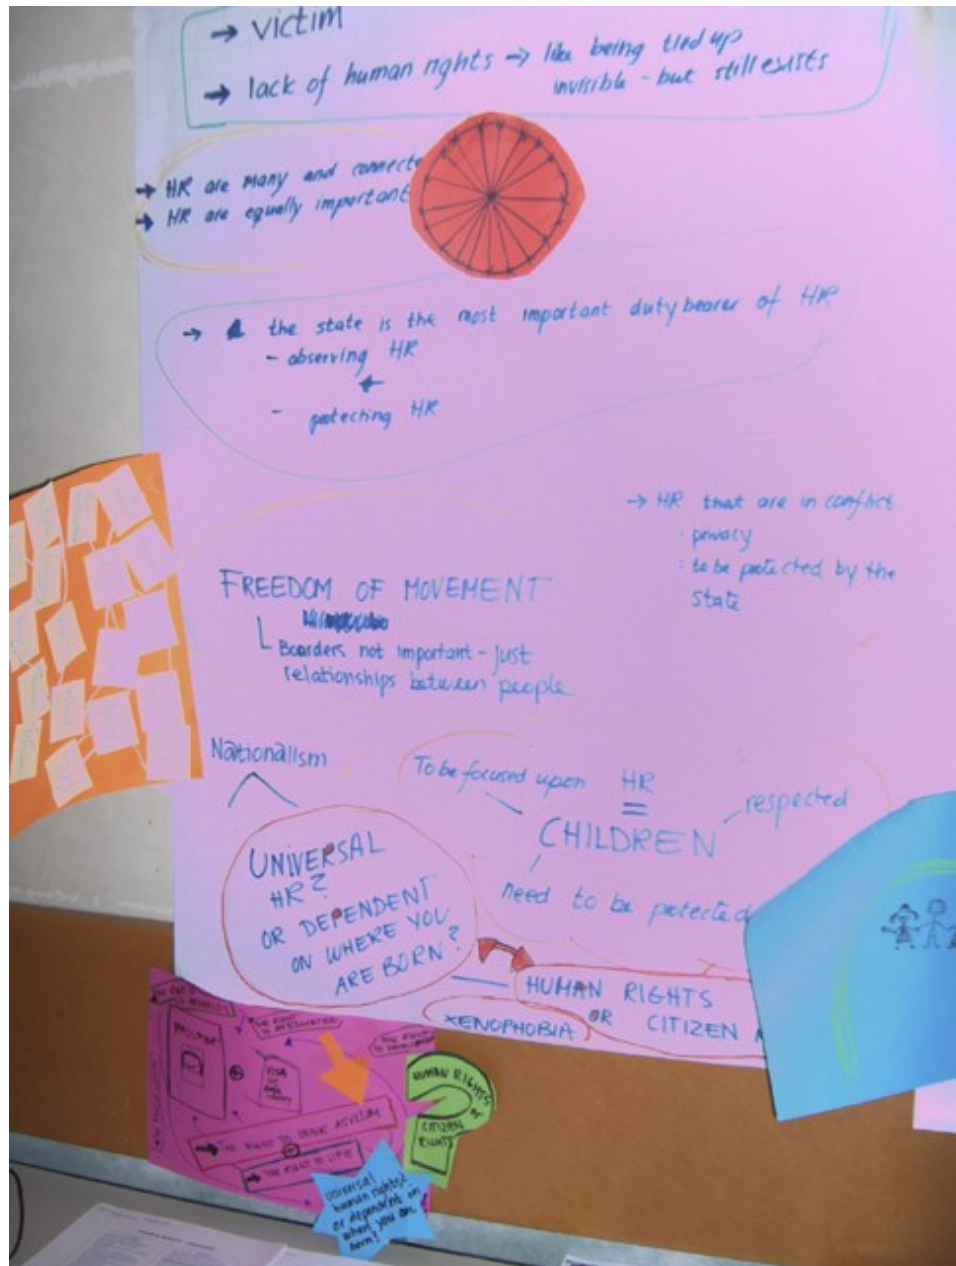 → victim
→ lack of human rights → like being tied up
invisible - but still exists
→ HR are many and connecte
→ HR are equally important
→ the state is the most important duty bearer of HR
- observing HR
←
- protecting HR
→ HR that are in conflict
: privacy
: to be protected by the
state
FREEDOM OF MOVEMENT
Boarders not important - just
relationships between people
Nationalism
To be focused upon
HR
=
respected
CHILDREN
need to be protected
UNIVERSAL
HR?
OR DEPENDENT
ON WHERE YOU
ARE BORN?
HUMAN RIGHTS
OR CITIZEN
XENOPHOBIA
PASSPORT
VISA
→ THE RIGHT TO SEEK ASYLUM
→ THE RIGHT TO LIFE
HUMAN RIGHTS
or
CITIZEN
RIGHTS
universal
human rights?
or dependent on
where you are
born?